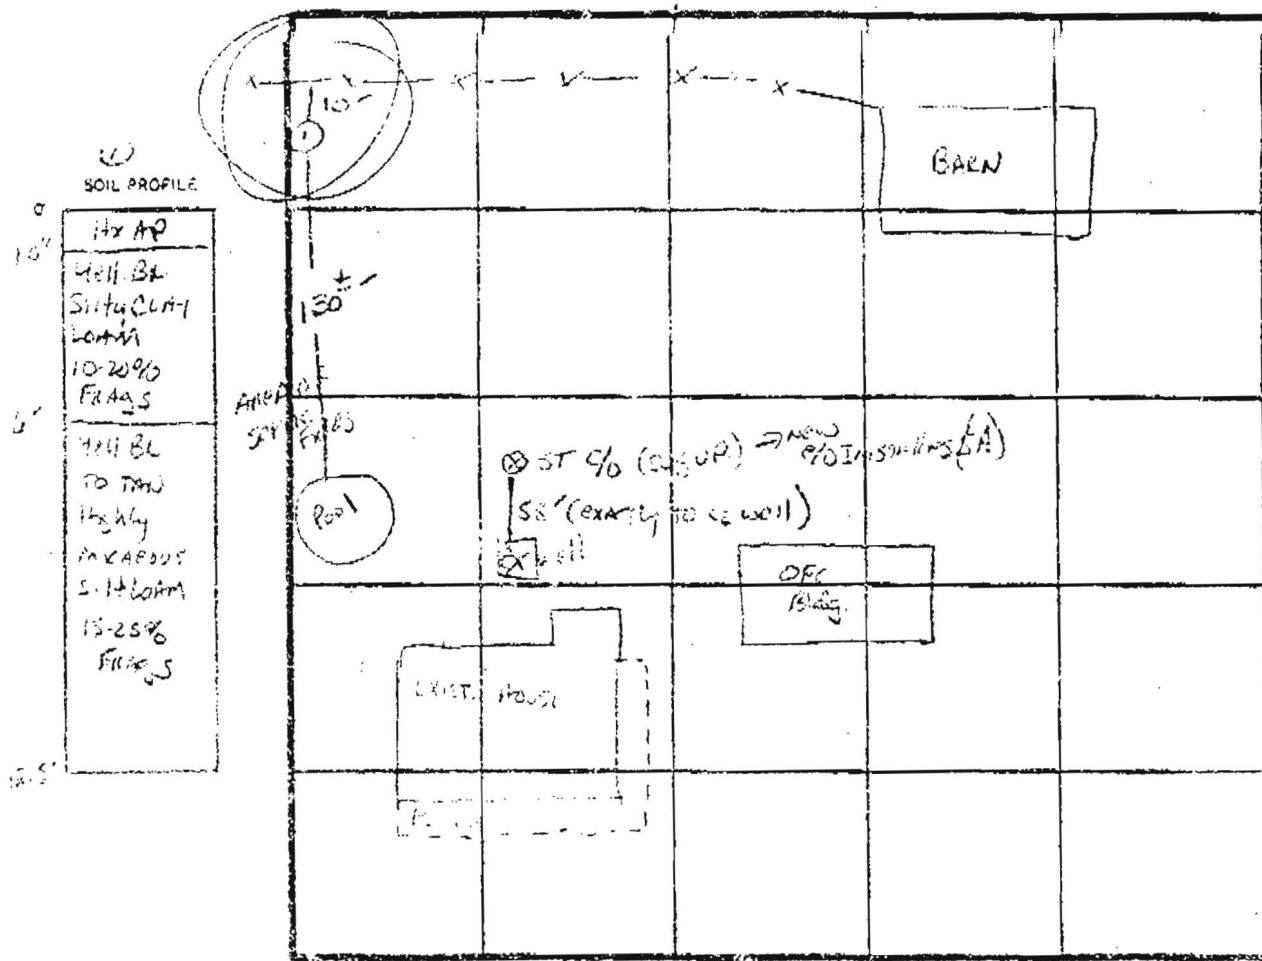 1
SOIL PROFILE
0
10"
Hx AP
Yell. BR
Silty CLAY
LOAM
10-20%
FRAGS
4'
Yell BR
TO TAN
Highly
MICACEOUS
Silt LOAM
15-25%
FRAGS
6.5'
10'
1
BARN
130' ±
AREA OF
Pool
ST C/O (    ) → NEW
C/O Installing
58' (exactly to    well)
well
OFC
Bldg.
EXIST. HOUSE